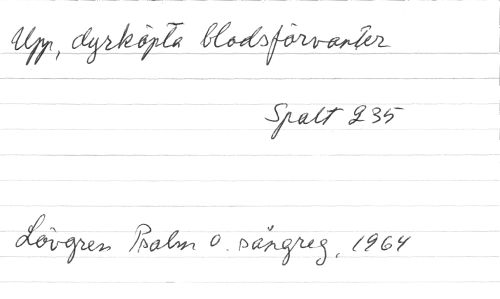 Upp, dyrköpta blodsförvanter
Spalt 235
Lövgren Psalm o. sångreg, 1964